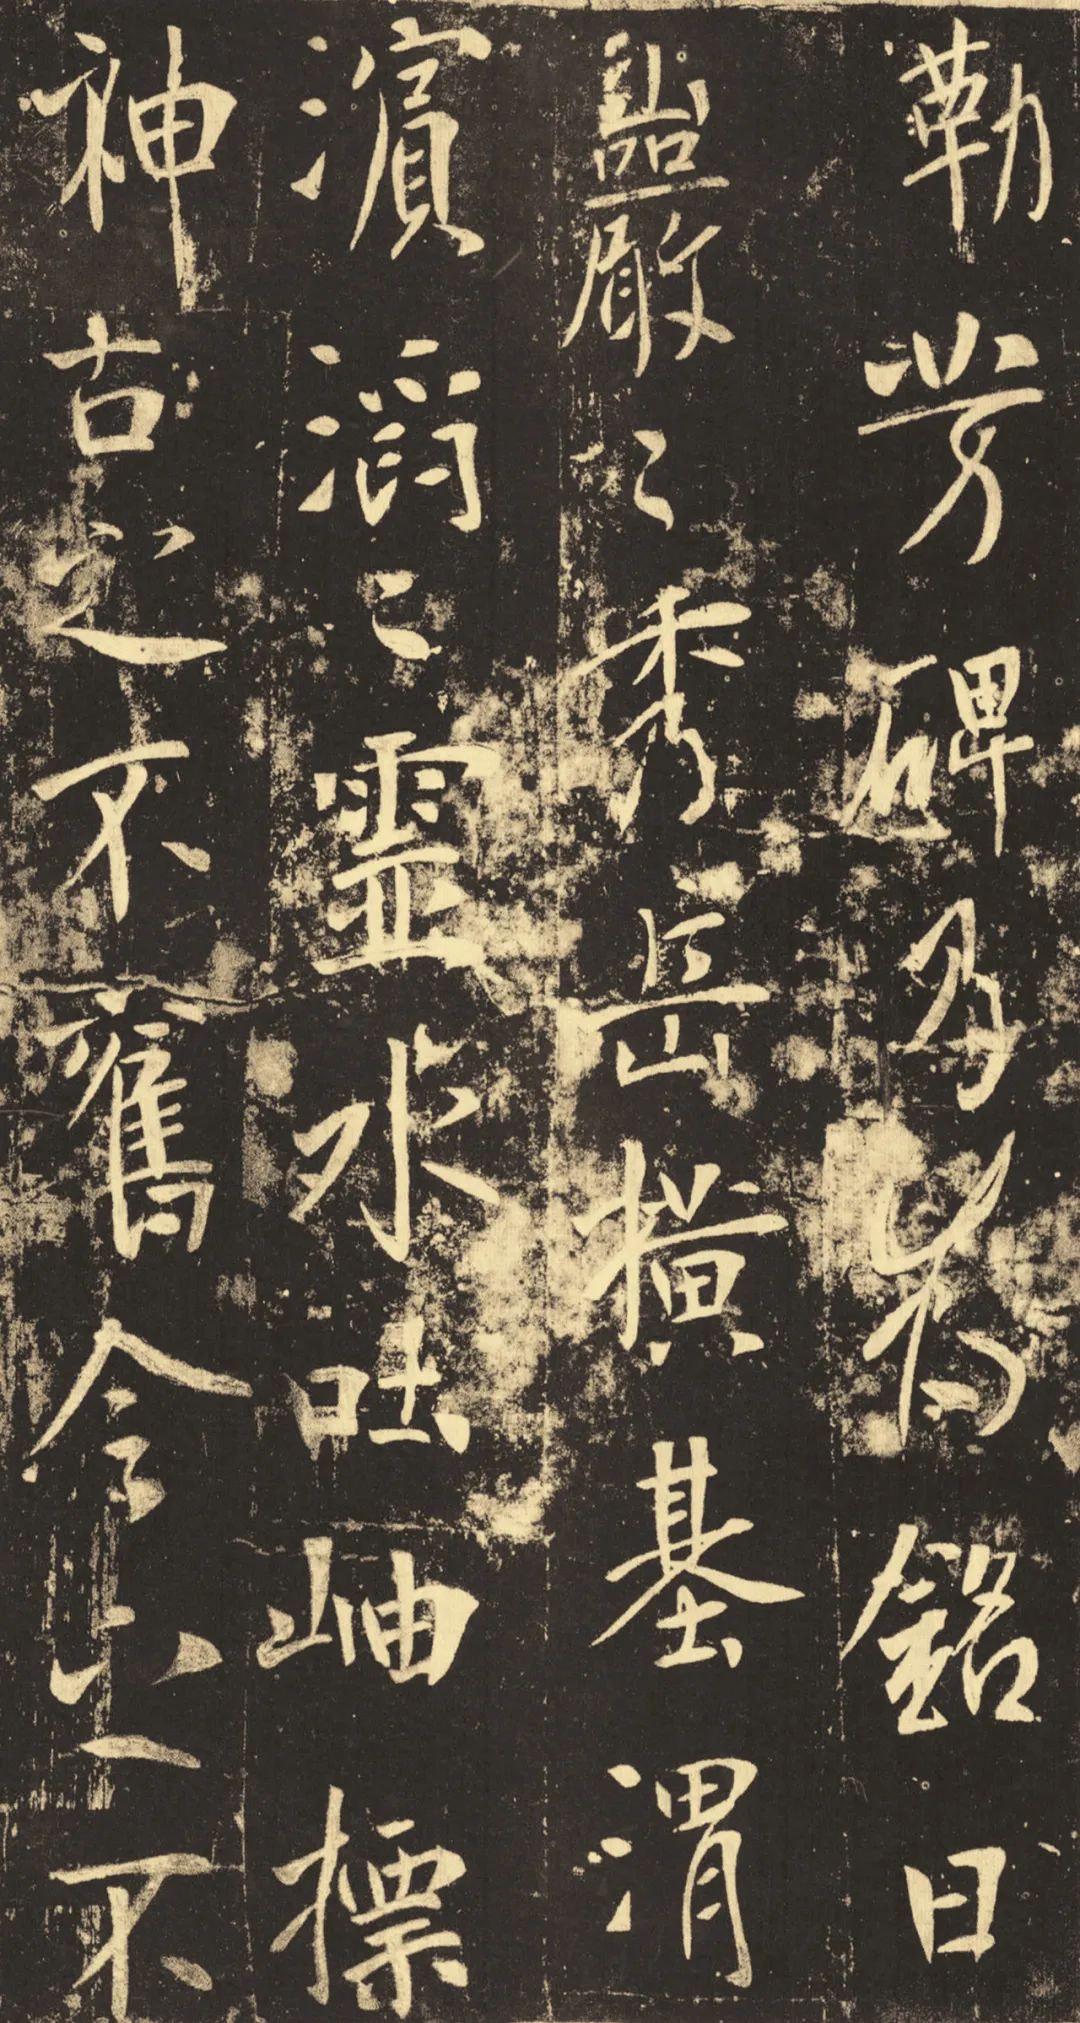 勒芳碑乃為銘曰
巖〻秀岳橫基渭
濱滔〻靈水吐岫標
神古之不舊今之不